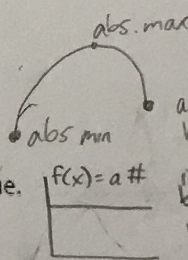 abs. max
abs min
f(x) = a #